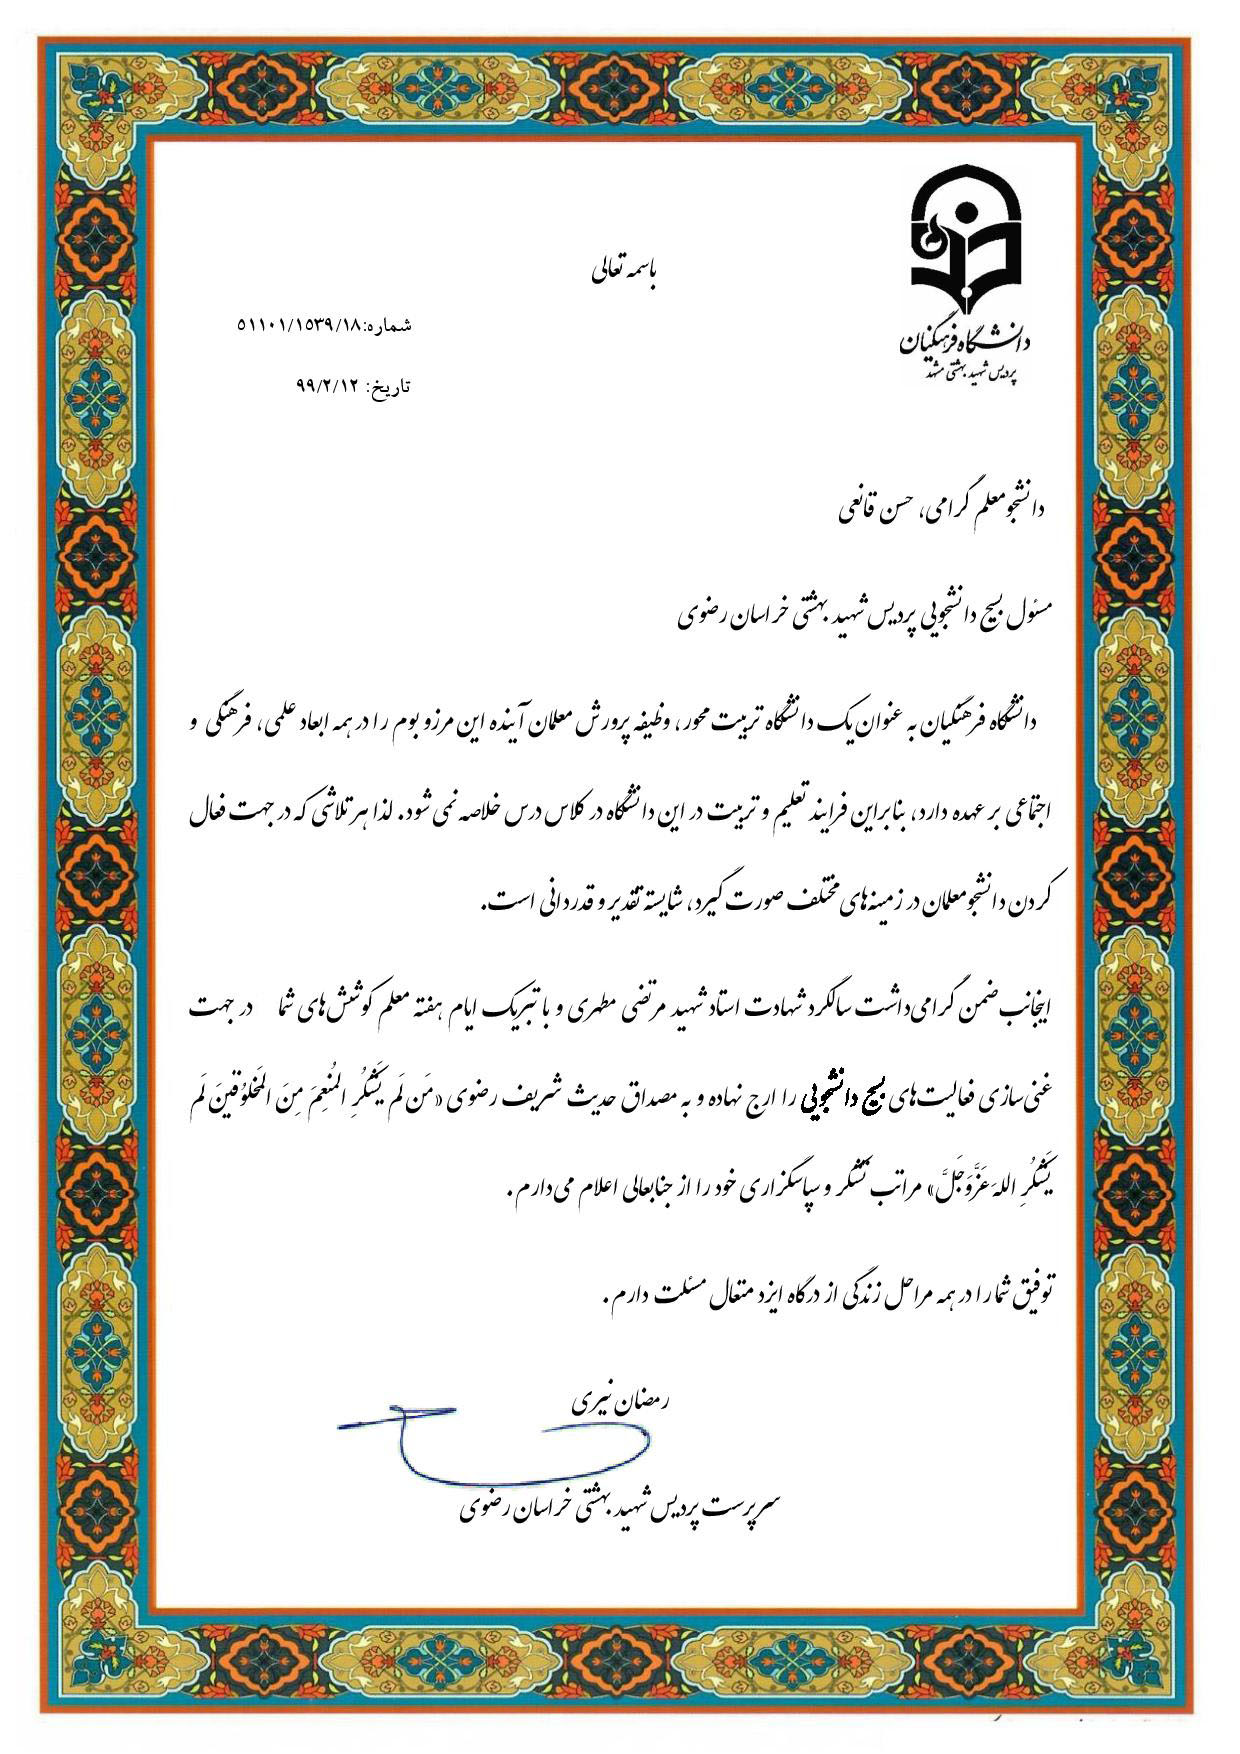 باسمه تعالی
دانشگاه فرهنگیان
پردیس شهید بهشتی مشهد
شماره:۵۱۱۰۱/۱۵۳۹/۱۸
تاریخ: ۹۹/۲/۱۲
دانشجومعلم گرامی، حسن قانعی
مسئول بسیج دانشجویی پردیس شهید بهشتی خراسان رضوی
دانشگاه فرهنگیان به عنوان یک دانشگاه تربیت محور، وظیفه پرورش معلمان آینده این مرزو بوم را در همه ابعاد علمی، فرهنگی و
اجتماعی بر عهده دارد، بنابراین فرایند تعلیم و تربیت در این دانشگاه در کلاس درس خلاصه نمی شود. لذا هر تلاشی که در جهت فعال
کردن دانشجومعلمان در زمینه‌های مختلف صورت گیرد، شایسته تقدیر و قدردانی است.
اینجانب ضمن گرامی‌داشت سالگرد شهادت استاد شهید مرتضی مطهری و با تبریک ایام هفته معلم کوشش‌های شما در جهت
غنی‌سازی فعالیت‌های بسیج دانشجویی را ارج نهاده و به مصداق حدیث شریف رضوی «مَن لَم یَشکُرِ المُنعِمَ مِنَ المَخلوُقینَ لَم
یَشکُرِ اللهَ عَزَّوَجَلَّ» مراتب تشکر و سپاسگزاری خود را از جنابعالی اعلام می‌دارم.
توفیق شما را در همه مراحل زندگی از درگاه ایزد متعال مسئلت دارم.
رمضان نیری
سرپرست پردیس شهید بهشتی خراسان رضوی